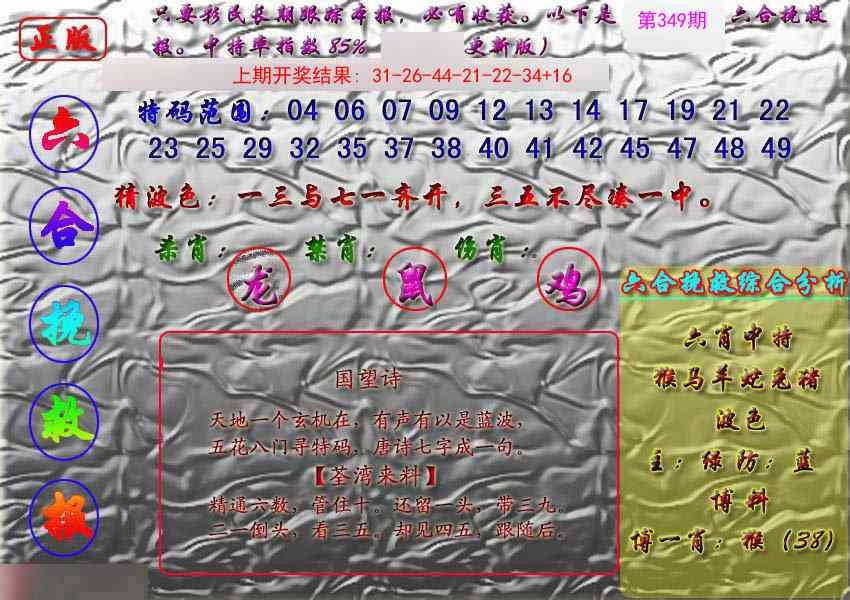 正版
只要彩民长期跟踪本报，必有收获。以下是 第349期 六合挽救
报。中特率指数85% 更新版）
上期开奖结果：31-26-44-21-22-34+16
特码范围：04 06 07 09 12 13 14 17 19 21 22
23 25 29 32 35 37 38 40 41 42 45 47 48 49
猜波色：一三与七一齐开，三五不尽凑一中。
杀肖： 禁肖： 伤肖：
龙 鼠 鸡
六
合
挽
救
报
国望诗
天地一个玄机在，有声有以是蓝波，
五花八门寻特码，唐诗七字成一句。
【荃湾来料】
精通六数，管住十。还留一头，带三九。
二一倒头，看三五。却见四五，跟随后。
六合挽救综合分析
六肖中特
猴马羊蛇兔猪
波色
主：绿防：蓝
博料
博一肖：猴（38）